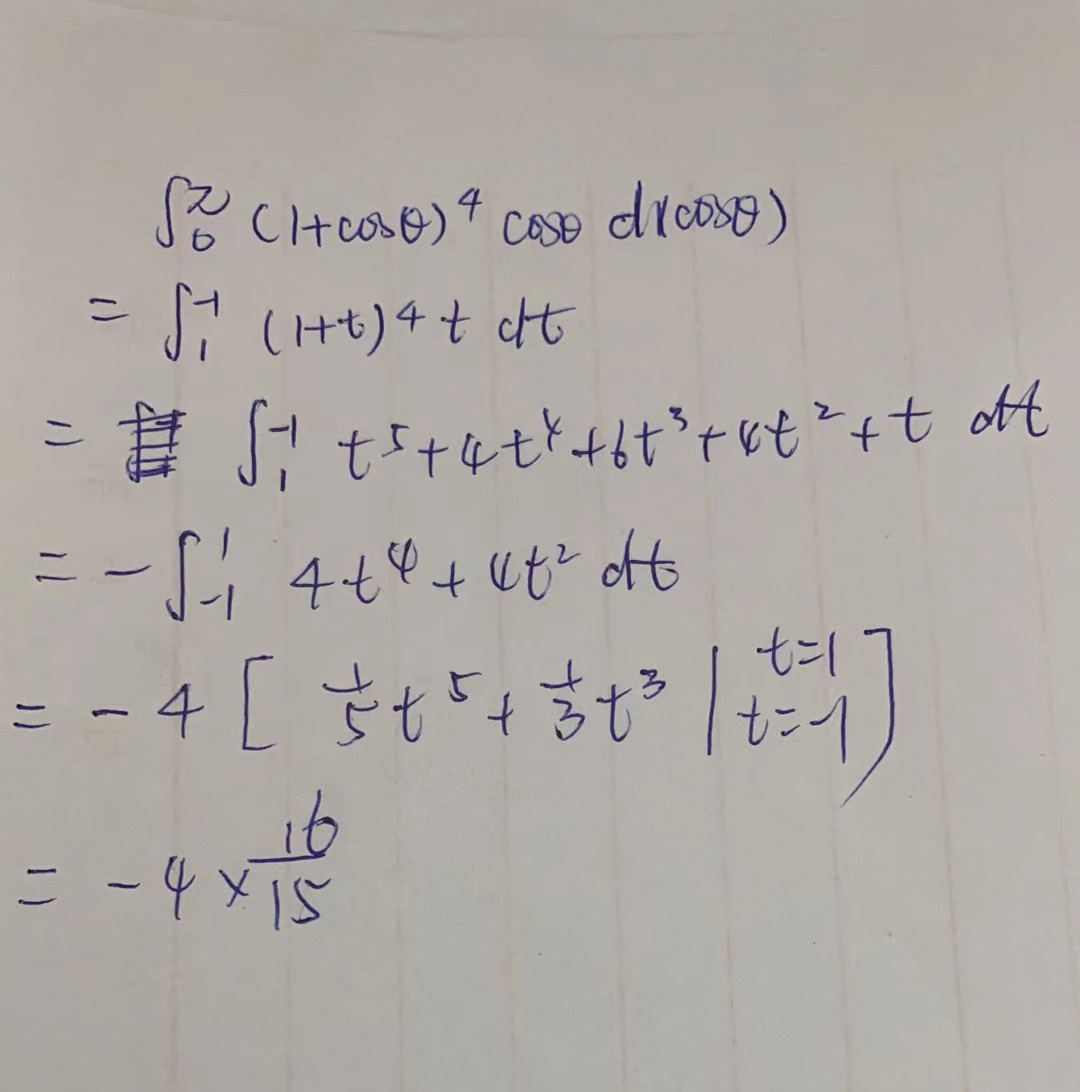 ∫₀^π (1+cosθ)⁴ cosθ d(cosθ)
= ∫₁^-1 (1+t)⁴ t dt
= ∫₁^-1 t⁵+4t⁴+6t³+4t²+t dt
= -∫₋₁^1 4t⁴+4t² dt
= -4 [ 1/5 t⁵ + 1/3 t³ | t=1 t=-1 ]
= -4 × 16/15